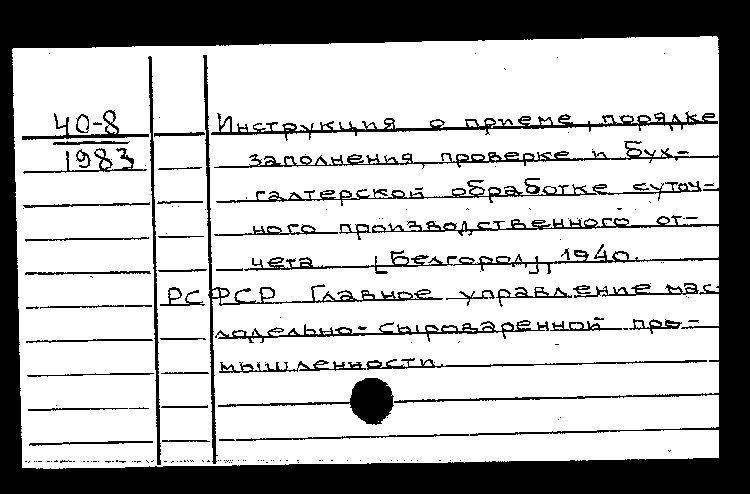 40-8
1983
Инструкция о приеме, порядке
заполнения, проверке и бух-
галтерской обработке суточ-
ного производственного от-
чета [Белгород], 1940.
РСФСР Главное управление мас-
лодельно-сыроваренной про-
мышленности.